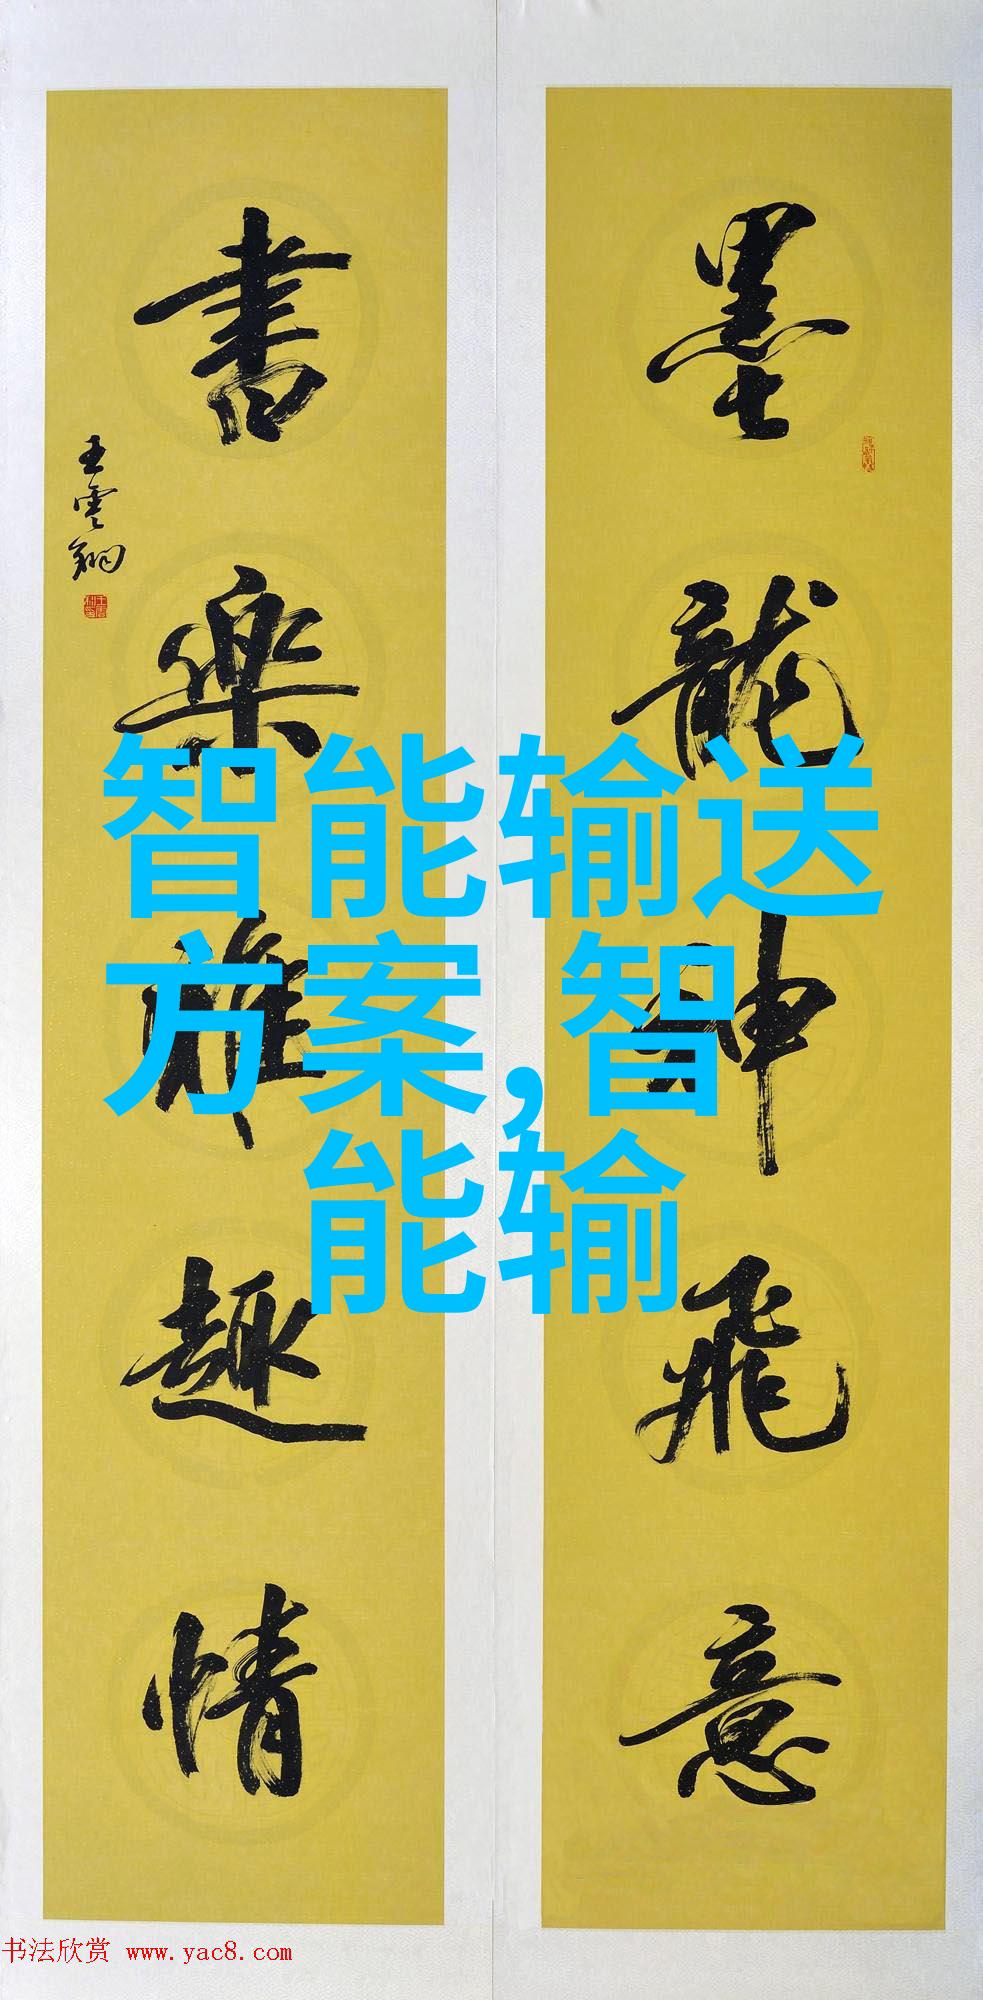 墨龍神飛意
書樂雅趣情
王雲翔
智能输送
方案,智
能输
书法欣赏 www.yac8.com